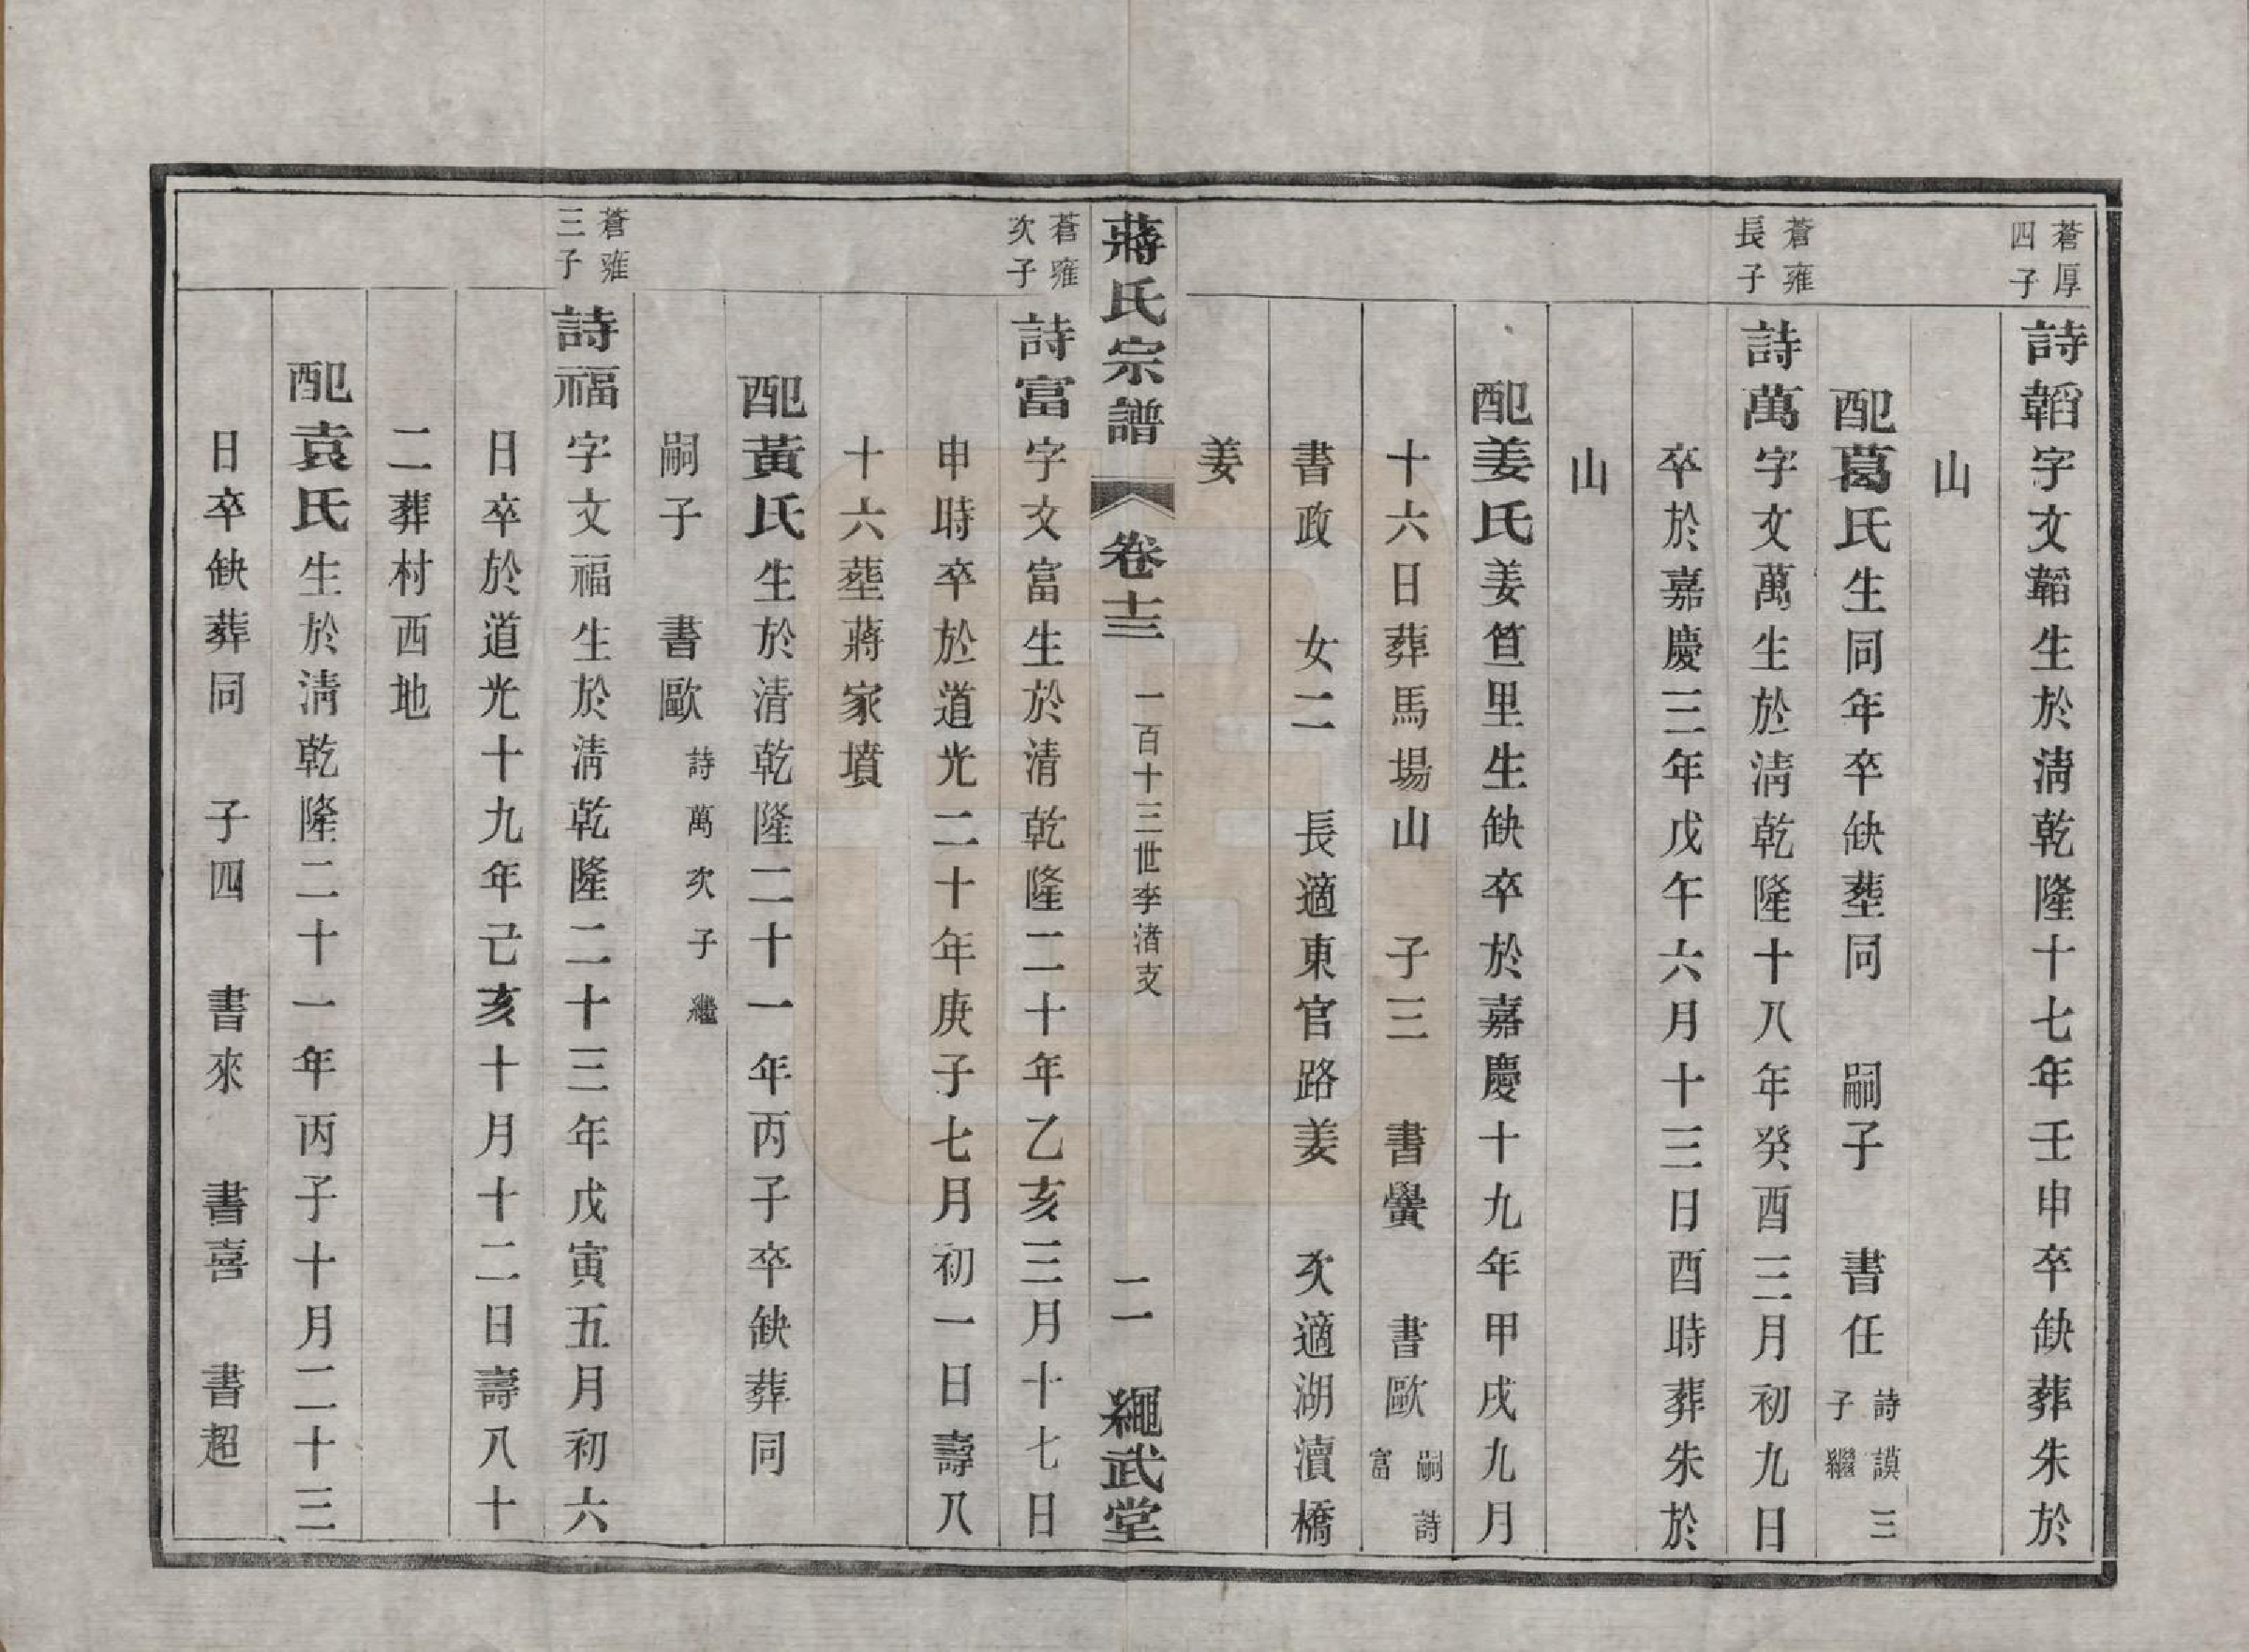 蒼厚四子
詩韜字文韜生於清乾隆十七年壬申卒缺葬朱於
山
配葛氏生同年卒缺塟同 嗣子 書任 詩謨三子繼
蒼雍長子
詩萬字文萬生於清乾隆十八年癸酉三月初九日
卒於嘉慶三年戊午六月十三日酉時葬朱於
山
配姜氏姜笪里生缺卒於嘉慶十九年甲戌九月
十六日葬馬場山 子三 書黌 書歐 嗣詩富
書政 女二 長適東官路姜 次適湖瀆橋
姜
蔣氏宗譜 卷十三 一百十三世李渚支 二 繩武堂
蒼雍次子
詩富字文富生於清乾隆二十年乙亥三月十七日
申時卒於道光二十年庚子七月初一日壽八
十六塟蔣家墳
配黃氏生於清乾隆二十一年丙子卒缺葬同
嗣子 書歐 詩萬次子繼
蒼雍三子
詩福字文福生於清乾隆二十三年戊寅五月初六
日卒於道光十九年己亥十月十二日壽八十
二葬村西地
配袁氏生於清乾隆二十一年丙子十月二十三
日卒缺葬同 子四 書來 書喜 書超